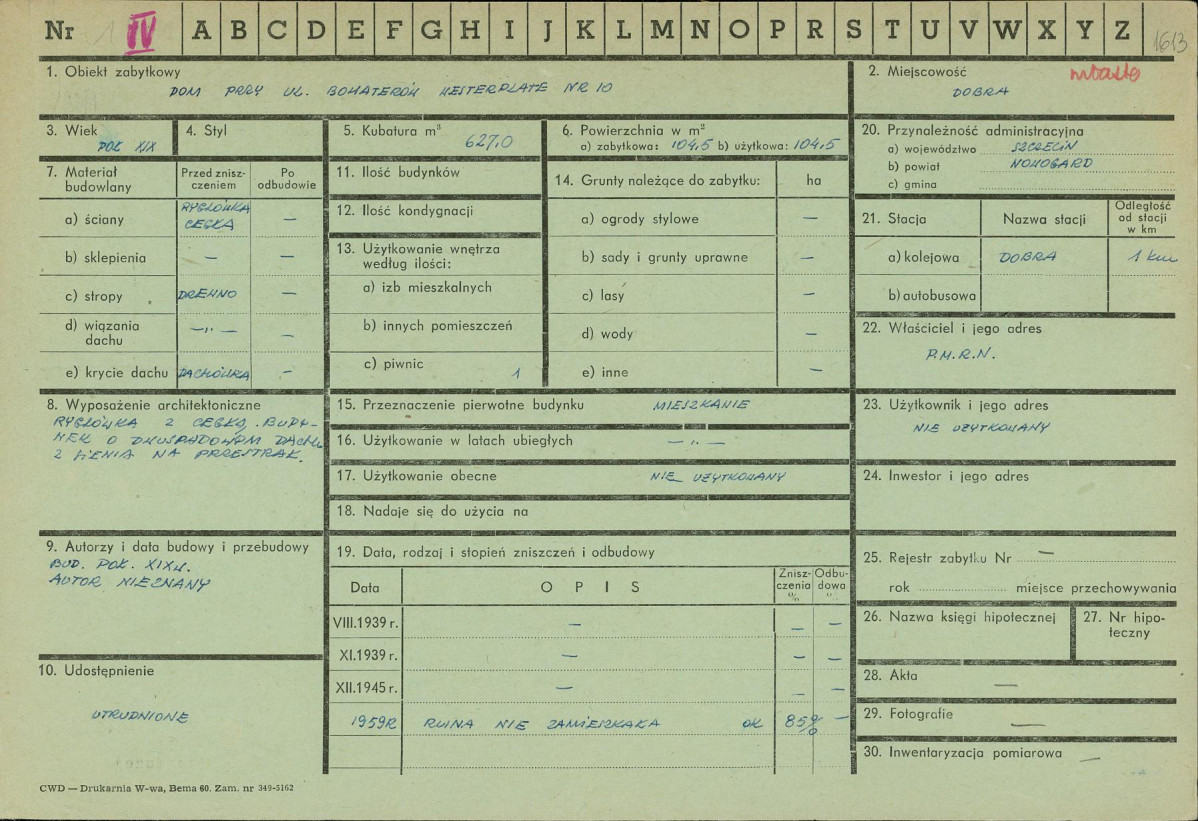 Nr IV A B C D E F G H I J K L M N O P R S T U V W X Y Z 1613
1. Obiekt zabytkowy
DOM PRZY UL. BOHATERÓW WESTERPLATE NR 10
2. Miejscowość miasto
DOBRA
3. Wiek
POŁ XIX
4. Styl
5. Kubatura m³
627,0
6. Powierzchnia w m²
a) zabytkowa: 104,5 b) użytkowa: 104,5
20. Przynależność administracyjna
a) województwo SZCZECIN
b) powiat NOWOGARD
c) gmina
7. Materiał budowlany
Przed zniszczeniem
Po odbudowie
a) ściany RYGLÓWKA CEGŁA —
b) sklepienia — —
c) stropy DREWNO —
d) wiązania dachu —„— —
e) krycie dachu DACHÓWKA —
11. Ilość budynków
12. Ilość kondygnacji
13. Użytkowanie wnętrza
według ilości:
a) izb mieszkalnych
b) innych pomieszczeń
c) piwnic 1
14. Grunty należące do zabytku: ha
a) ogrody stylowe —
b) sady i grunty uprawne —
c) lasy —
d) wody —
e) inne —
21. Stacja Nazwa stacji Odległość od stacji w km
a) kolejowa DOBRA 1 km
b) autobusowa
22. Właściciel i jego adres
P.M.R.N.
8. Wyposażenie architektoniczne
RYGLÓWKA Z CEGŁĄ. BUDY-
NEK O DWUSPADOWYM DACHU
Z WENIA NA PRZESTRAŁ.
15. Przeznaczenie pierwotne budynku MIESZKANIE
16. Użytkowanie w latach ubiegłych —„—
17. Użytkowanie obecne NIE UŻYTKOWANY
18. Nadaje się do użycia na
23. Użytkownik i jego adres
NIE UŻYTKOWANY
24. Inwestor i jego adres
9. Autorzy i data budowy i przebudowy
BUD. POŁ. XIX W.
AUTOR NIEZNANY
19. Data, rodzaj i stopień zniszczeń i odbudowy
Data O P I S Zniszczenia % Odbudowa %
VIII.1939 r. — — —
XI.1939 r. — — —
XII.1945 r. — — —
1959R RUINA NIE ZAMIESZKAŁA OK 85% —
25. Rejestr zabytku Nr —
rok miejsce przechowywania
26. Nazwa księgi hipotecznej
27. Nr hipoteczny
10. Udostępnienie
UTRUDNIONE
28. Akta —
29. Fotografie —
30. Inwentaryzacja pomiarowa —
CWD — Drukarnia W-wa, Bema 60. Zam. nr 349-5162